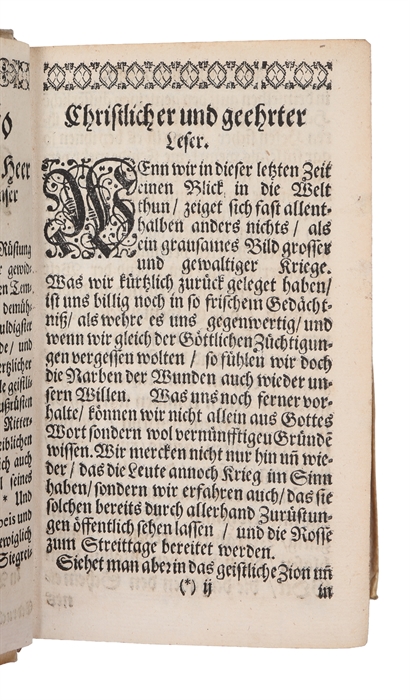 io
Heer
ser
Rüstung
r gewid-
en Tem-
demüh-
uldigster
de/ und
ertzlicher
le geistli-
ußrüsten
Ritter-
eiblichen
ich auch
l seines
* Und
eis und
ewiglich
Siegrei-
Christlicher und geehrter
Leser.
WEnn wir in dieser letzten Zeit
einen Blick in die Welt
thun/ zeiget sich fast allent-
halben anders nichts/ als
ein grausames Bild grosser
und gewaltiger Kriege.
Was wir kürtzlich zurück geleget haben/
ist uns billig noch in so frischem Gedächt-
niß/ als wehre es uns gegenwertig/ und
wenn wir gleich der Göttlichen Züchtigun-
gen vergessen wolten/ so fühlen wir doch
die Narben der Wunden auch wieder un-
sern Willen. Was uns noch ferner vor-
halte/ können wir nicht allein aus Gottes
Wort sondern wol vernünfftigen Gründē
wissen. Wir mercken nicht nur hin uñ wie-
der/ das die Leute annoch Krieg im Sinn
haben/ sondern wir erfahren auch/ das sie
solchen bereits durch allerhand Zurüstun-
gen öffentlich sehen lassen/ und die Rosse
zum Streittage bereitet werden.
Siehet man aber in das geistliche Zion uñ
(*) ij
in